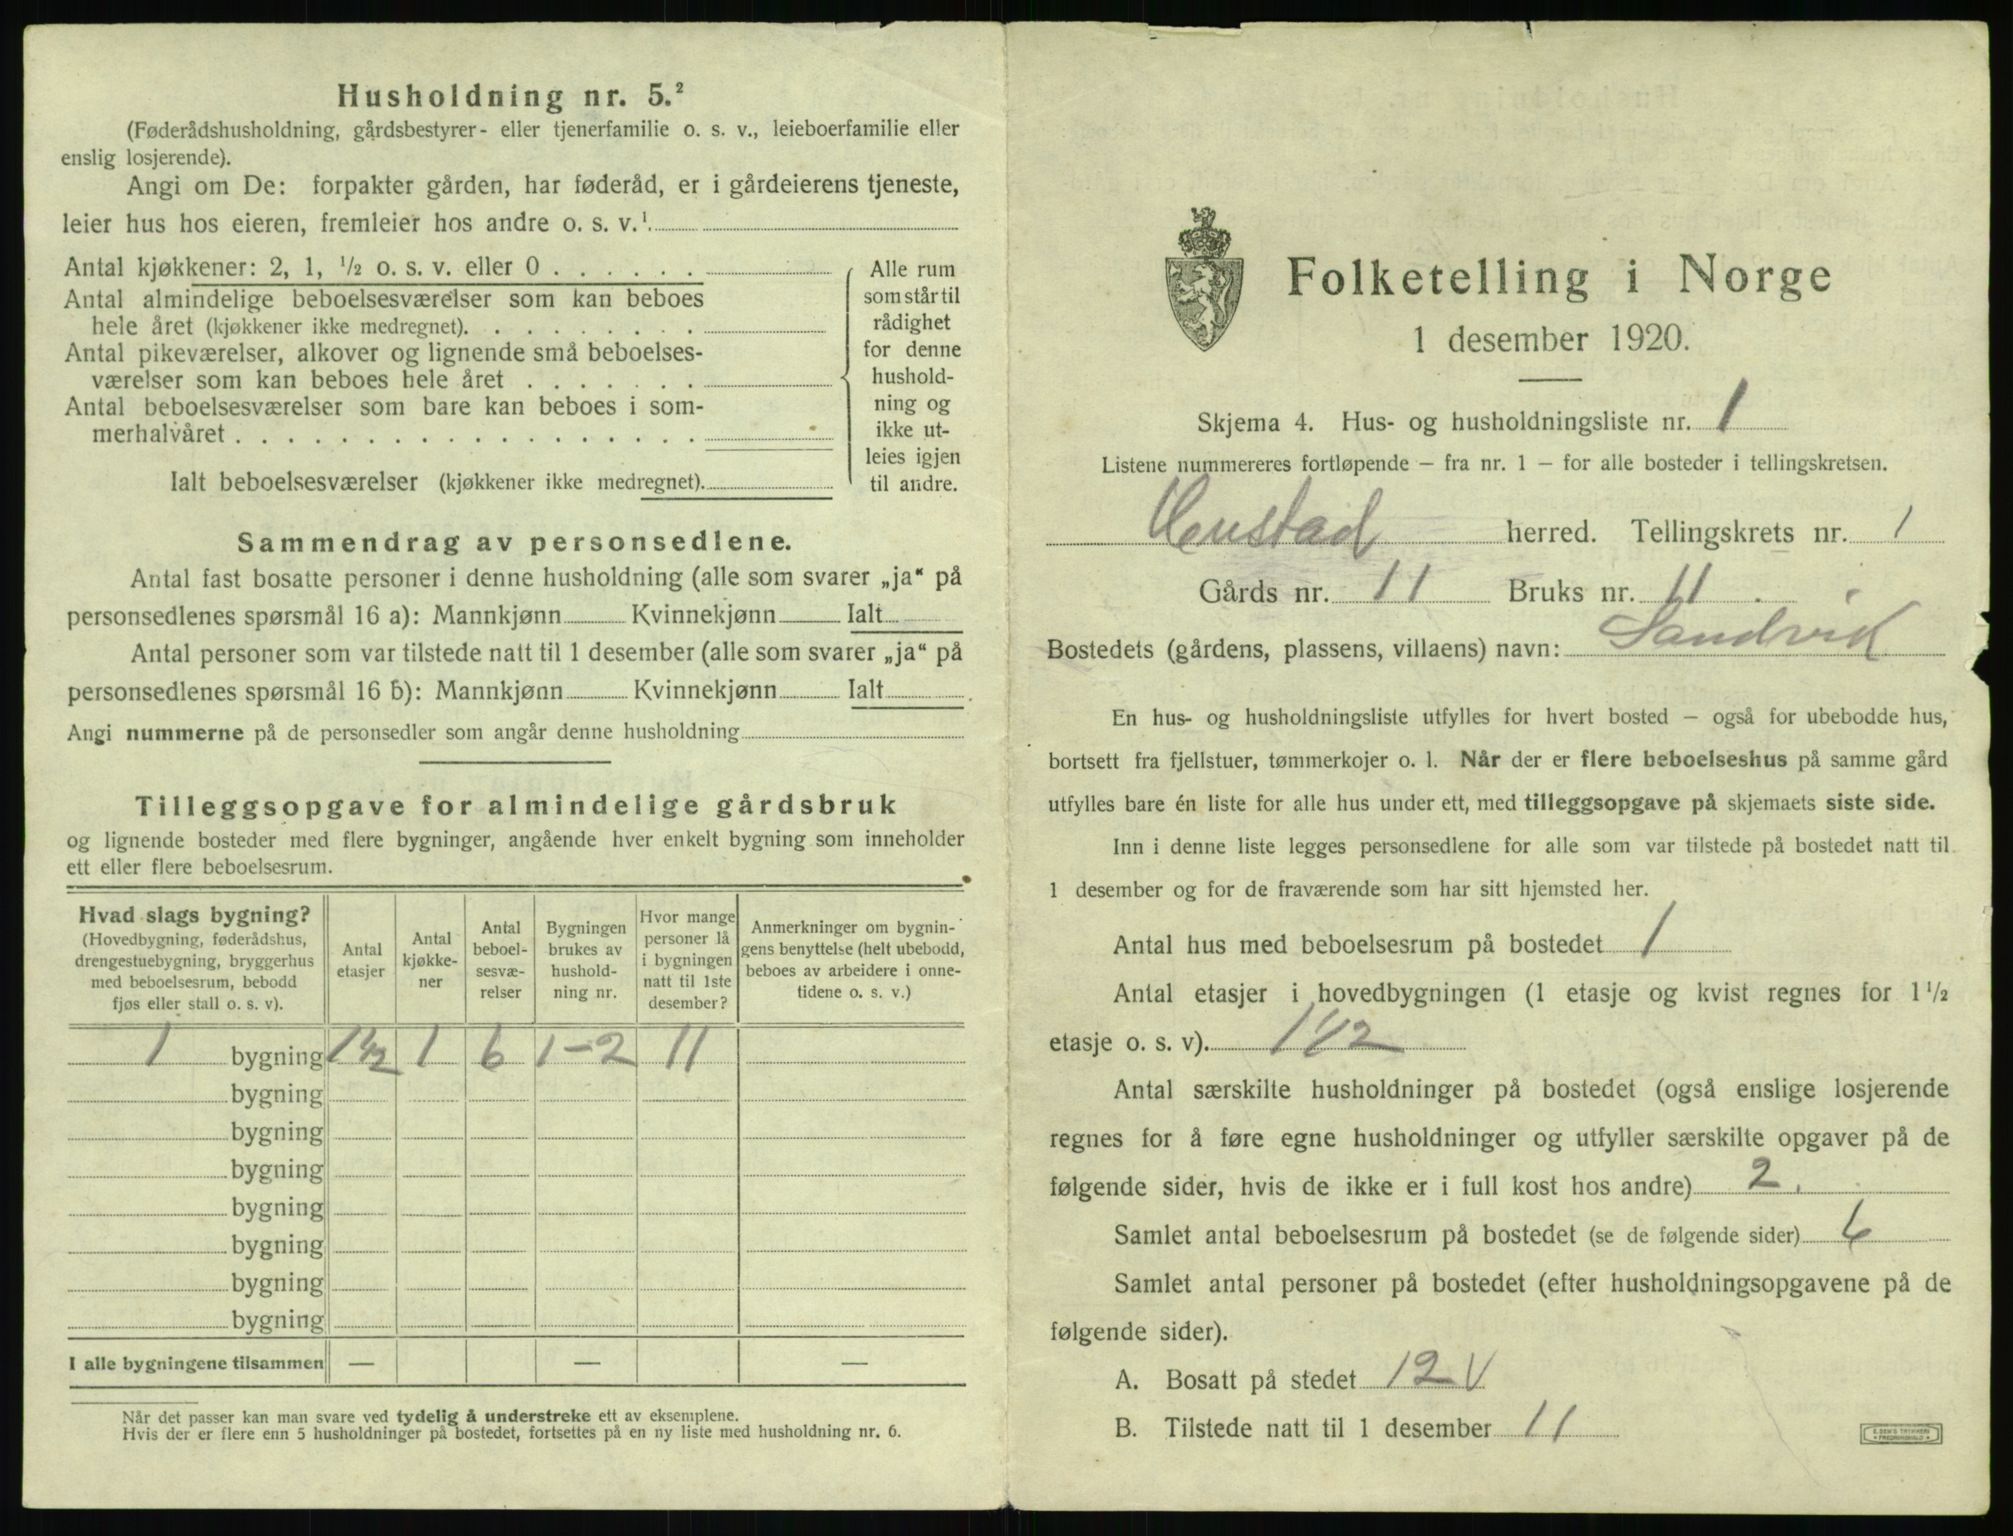 Husholdning nr. 5.²
(Føderådshusholdning, gårdsbestyrer- eller tjenerfamilie o. s. v., leieboerfamilie eller
enslig losjerende).
Angi om De: forpakter gården, har føderåd, er i gårdeierens tjeneste,
leier hus hos eieren, fremleier hos andre o. s. v.¹
Antal kjøkkener: 2, 1, ½ o. s. v. eller 0 . . . . . .
Antal almindelige beboelsesværelser som kan beboes
hele året (kjøkkener ikke medregnet). . . . . . . . .
Antal pikeværelser, alkover og lignende små beboelses-
værelser som kan beboes hele året . . . . . . .
Antal beboelsesværelser som bare kan beboes i som-
merhalvåret . . . . . . . . . . . . . . . . . .
Ialt beboelsesværelser (kjøkkener ikke medregnet).
Alle rum
som står til
rådighet
for denne
hushold-
ning og
ikke ut-
leies igjen
til andre.
Sammendrag av personsedlene.
Antal fast bosatte personer i denne husholdning (alle som svarer „ja“ på
personsedlenes spørsmål 16 a): Mannkjønn Kvinnekjønn Ialt
Antal personer som var tilstede natt til 1 desember (alle som svarer „ja“ på
personsedlenes spørsmål 16 b): Mannkjønn Kvinnekjønn Ialt
Angi nummerne på de personsedler som angår denne husholdning
Tilleggsopgave for almindelige gårdsbruk
og lignende bosteder med flere bygninger, angående hver enkelt bygning som inneholder
ett eller flere beboelsesrum.
Hvad slags bygning?
(Hovedbygning, føderådshus,
drengestuebygning, bryggerhus
med beboelsesrum, bebodd
fjøs eller stall o. s. v).
Antal
etasjer
Antal
kjøkke-
ner
Antal
beboel-
sesvæ-
relser
Bygningen
brukes av
hushold-
ning nr.
Hvor mange
personer lå
i bygningen
natt til 1ste
desember?
Anmerkninger om bygnin-
gens benyttelse (helt ubebodd,
beboes av arbeidere i onne-
tidene o. s. v.)
1 bygning 1½ 1 6 1-2 11
bygning
bygning
bygning
bygning
bygning
bygning
bygning
I alle bygningene tilsammen — — —
Når det passer kan man svare ved tydelig å understreke ett av eksemplene.
Hvis der er flere enn 5 husholdninger på bostedet, fortsettes på en ny liste med husholdning nr. 6.
Folketelling i Norge
1 desember 1920.
Skjema 4. Hus- og husholdningsliste nr. 1
Listene nummereres fortløpende – fra nr. 1 – for alle bosteder i tellingskretsen.
Hustad herred. Tellingskrets nr. 1
Gårds nr. 11 Bruks nr. 11
Bostedets (gårdens, plassens, villaens) navn: Sandvik
En hus- og husholdningsliste utfylles for hvert bosted – også for ubebodde hus,
bortsett fra fjellstuer, tømmerkojer o. l. Når der er flere beboelseshus på samme gård
utfylles bare én liste for alle hus under ett, med tilleggsopgave på skjemaets siste side.
Inn i denne liste legges personsedlene for alle som var tilstede på bostedet natt til
1 desember og for de fraværende som har sitt hjemsted her.
Antal hus med beboelsesrum på bostedet 1
Antal etasjer i hovedbygningen (1 etasje og kvist regnes for 1½
etasje o. s. v). 1½
Antal særskilte husholdninger på bostedet (også enslige losjerende
regnes for å føre egne husholdninger og utfyller særskilte opgaver på de
følgende sider, hvis de ikke er i full kost hos andre) 2.
Samlet antal beboelsesrum på bostedet (se de følgende sider) 6
Samlet antal personer på bostedet (efter husholdningsopgavene på de
følgende sider).
A. Bosatt på stedet 12 V
B. Tilstede natt til 1 desember 11